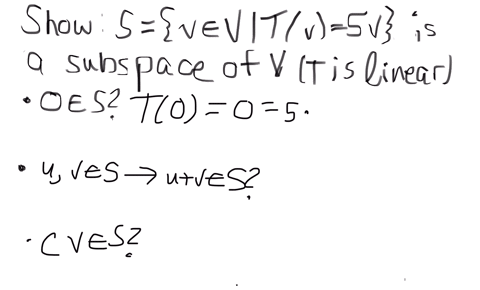 Show: S={v∈V|T(v)=5v} is
a subspace of V (T is linear)
• 0∈S? T(0)=0=5·
• u,v∈S→u+v∈S?
• cv∈S?